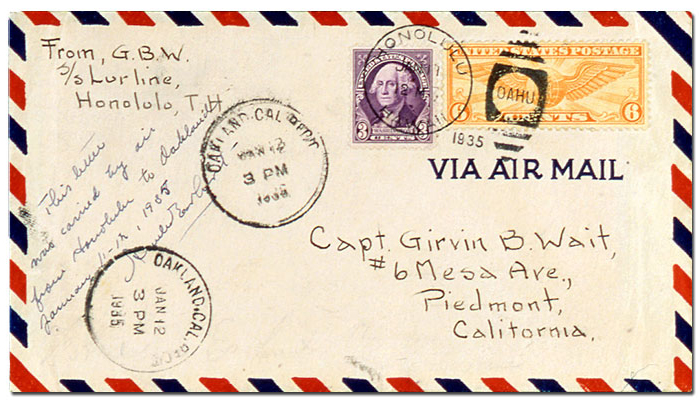 From, G.B.W.
s/s Lurline,
Honolulo, T.H.
This letter
was carried by air
from Honolulu to Oakland
January 11-12, 1935
OAKLAND.CAL. REC'D
JAN 12
3 PM
1935
OAKLAND.CAL. REC'D
JAN 12
3 PM
1935
UNITED STATES POSTAGE
3
3
HONOLULU
HAWAII
1935
UNITED STATES POSTAGE
OAHU
6
CENTS
6
VIA AIR MAIL
Capt. Girvin B. Wait,
#6 Mesa Ave.,
Piedmont,
California.